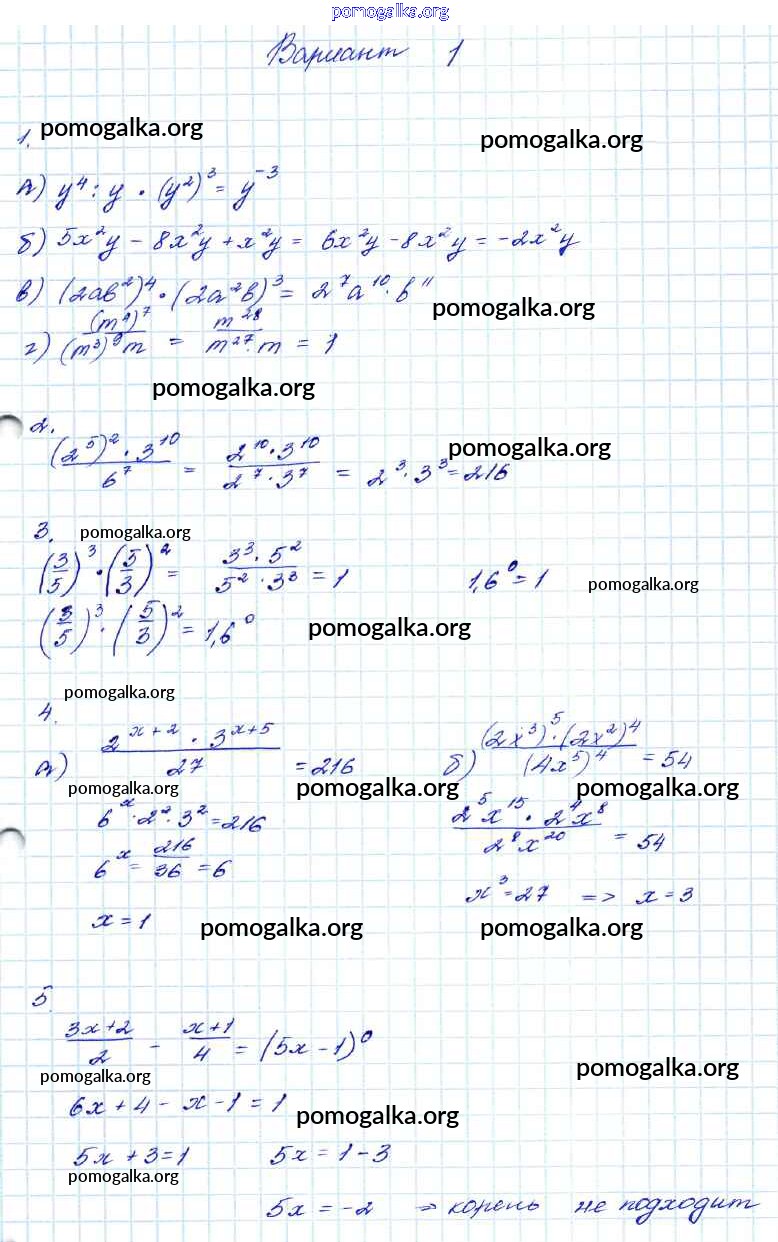 pomogalka.org
Вариант 1
pomogalka.org
1.
pomogalka.org
а) y⁴ : y · (y²)³ = y⁻³
б) 5x²y – 8x²y + x²y = 6x²y – 8x²y = –2x²y
в) (2ab²)⁴ · (2a²b)³ = 2⁷a¹⁰ · b¹¹
pomogalka.org
г) (m⁴)⁷ / (m³)⁹m = m²⁸ / m²⁷·m = 1
pomogalka.org
2.
(2⁵)² · 3¹⁰ / 6⁷ = 2¹⁰ · 3¹⁰ / 2⁷ · 3⁷ = 2³ · 3³ = 216
pomogalka.org
3.
pomogalka.org
(3/5)³ · (5/3)² = 3³ · 5² / 5² · 3³ = 1 1,6⁰ = 1
pomogalka.org
(3/5)³ · (5/3)² = 1,6⁰
pomogalka.org
pomogalka.org
4.
а) 2ˣ⁺² · 3ˣ⁺⁵ / 27 = 216
pomogalka.org
6ˣ · 2² · 3² = 216
6ˣ = 216 / 36 = 6
x = 1
pomogalka.org
б) (2x³)⁵ · (2x²)⁴ / (4x⁵)⁴ = 54
pomogalka.org
pomogalka.org
2⁵x¹⁵ · 2⁴x⁸ / 2⁸x²⁰ = 54
x³ = 27 => x = 3
pomogalka.org
5
3x+2 / 2 – x+1 / 4 = (5x – 1)⁰
pomogalka.org
pomogalka.org
6x + 4 – x – 1 = 1
pomogalka.org
5x + 3 = 1 5x = 1 – 3
pomogalka.org
5x = –2 ⇒ корень не подходит